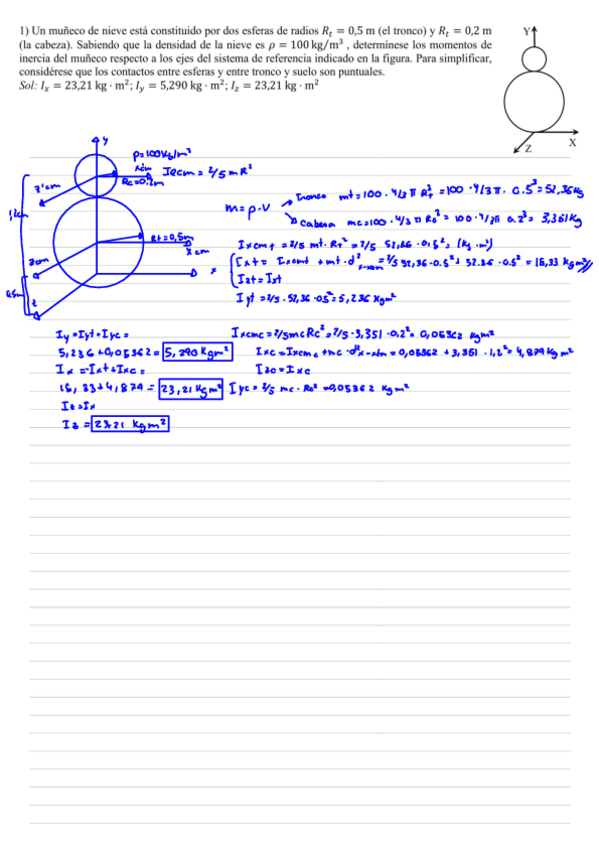 1) Un muñeco de nieve está constituido por dos esferas de radios R_t = 0,5 m (el tronco) y R_t = 0,2 m
(la cabeza). Sabiendo que la densidad de la nieve es ρ = 100 kg/m³ , determínese los momentos de
inercia del muñeco respecto a los ejes del sistema de referencia indicado en la figura. Para simplificar,
considérese que los contactos entre esferas y entre tronco y suelo son puntuales.
Sol: I_x = 23,21 kg · m²; I_y = 5,290 kg · m²; I_z = 23,21 kg · m²
Y
X
Z
Y
ρ=100kg/m³
Rc=0.2m
Iecm = 2/5 m R²
Rt=0,5m
x cm
x
z
m = ρ·V
Tronco mt=100 · 4/3 π Rt³ =100 · 4/3 π · 0.5³=52,36kg
Cabeza mc=100 · 4/3 π Rc³ = 100·4/3π 0.2³= 3,351kg
Ixcmt = 2/5 mt · Rt² = 2/5 52,36 · 0,5² = (kg·m²)
Ixt = Ixcmt + mt · d²x-xcm = 2/5 52,36 · 0.5² + 52.36 · 0.5² = 18,33 kgm²
Izt = Ixt
Iyt = 2/5 · 52,36 · 0.5² = 5,236 kgm²
Iy = Iyt + Iyc =
5,236+0,05362= 5,290 kgm²
Ix = Ixt + Ixc =
18,33+4,879 = 23,21 kgm²
Iz = Ix
Iz = 23,21 kgm²
Ixcmc = 2/5 mc Rc² = 2/5 · 3,351 · 0,2² = 0,05362 kgm²
Ixc = Ixcmc + mc · d²x-xcm = 0,05362 + 3,351 · 1,2² = 4,879 kgm²
Izc = Ixc
Iyc = 2/5 mc · Rc² = 0,05362 kgm²